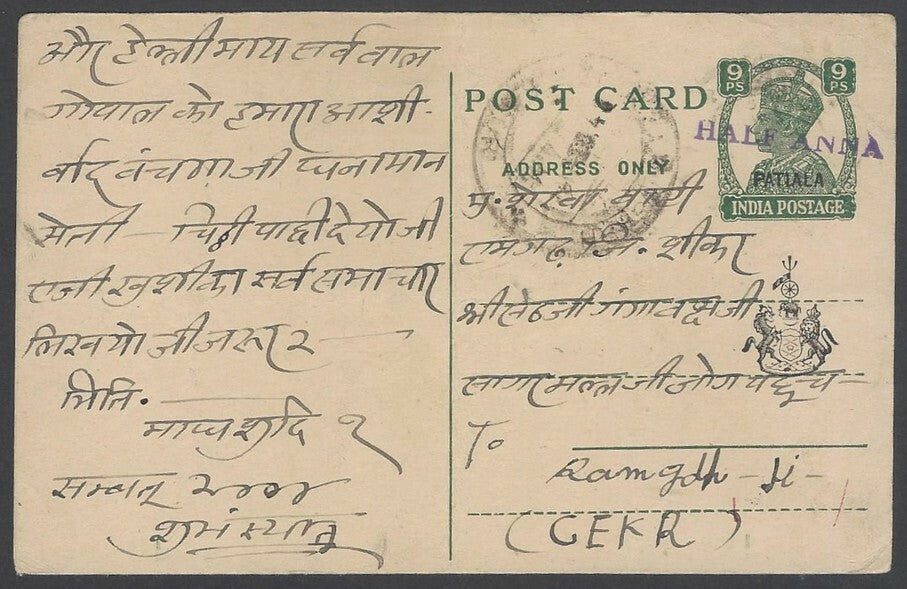 और हेल्लीमाय सर्व वाल
गोपाल को हमारा आशी-
र्वाद वंचणा जी घना मान
सेती — चिठी पाछी देयो जी
एजी खुशी का सर्व समाचार
लिखयो जी जरूर २ —
मिति.
माघ शुदि १
सम्बत् २०००
शुभं स्यात्
POST CARD
ADDRESS ONLY
9 PS
9 PS
HALF ANNA
PATIALA
INDIA POSTAGE
रामगढ़ जि. शीकर
श्री सेठ जी गंगा वक्ष जी
सागरमल्ल जी जोग पहूचे —
To
Ramgdh - Ji -
(CEKR)